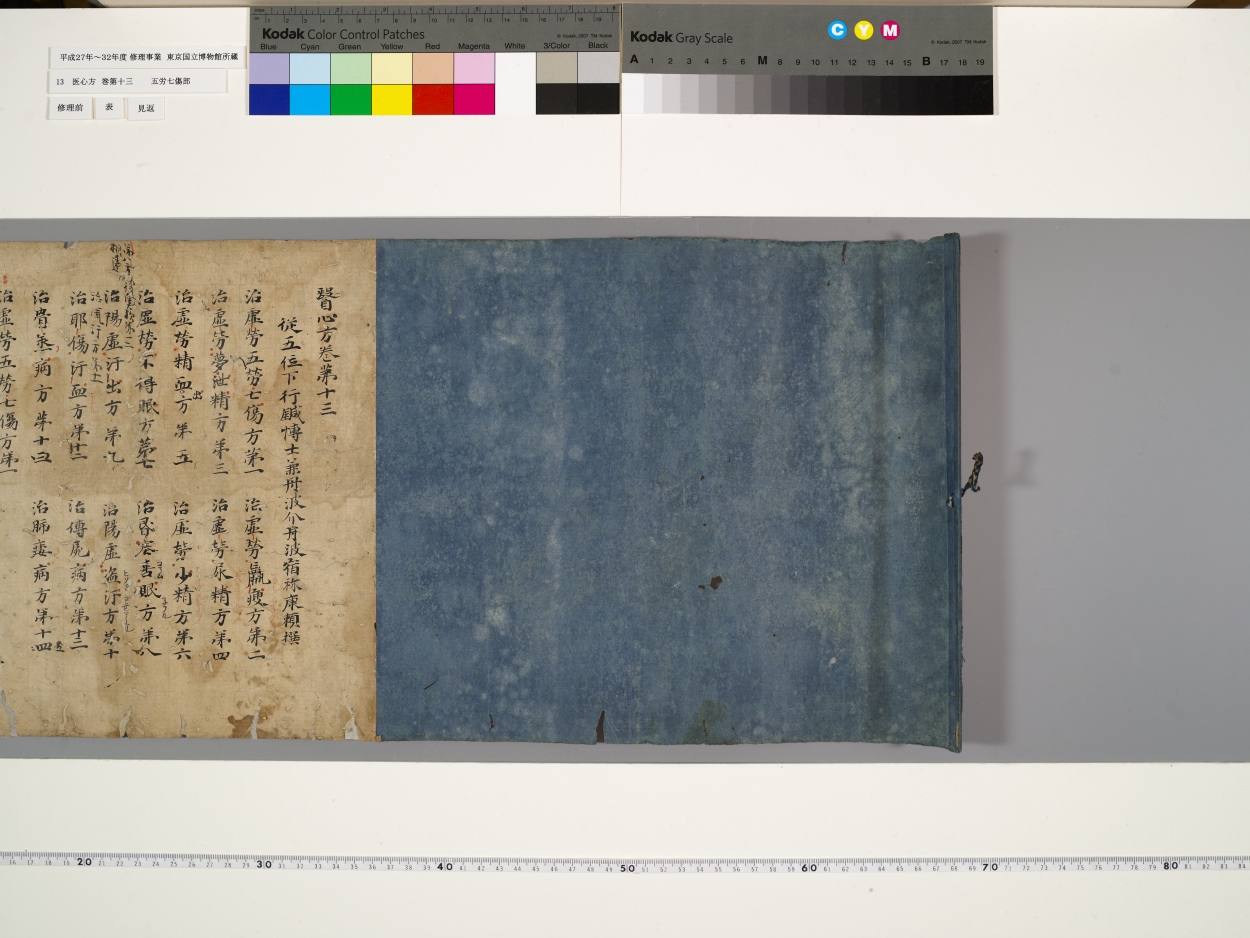 平成27年～32年度 修理事業 東京国立博物館所蔵
13 医心方 巻第十三 五労七傷部
修理前 表 見返
Kodak Color Control Patches
Blue Cyan Green Yellow Red Magenta White 3/Color Black
© Kodak, 2007 TM: Kodak
Kodak Gray Scale
C Y M
© Kodak, 2007 TM: Kodak
A 1 2 3 4 5 6 M 8 9 10 11 12 13 14 15 B 17 18 19
醫心方卷第十三
從五位下行鍼博士兼丹波介丹波宿祢康頼撰
治虛勞五勞七傷方第一 治虛勞羸瘦方第二
治虛勞夢泄精方第三 治虛勞尿精方第四
治虛勞精血出方第五 治虛勞少精方第六
治虛勞不得眠方第七 治昏塞喜眠方第八
治陽虛汗出方第九 治陽虛盜汗方第十
治傳屍病方第十三
治骨蒸病方第十四 治肺痿病方第十四
治虛勞五勞七傷方第一
20 30 40 50 60 70 80